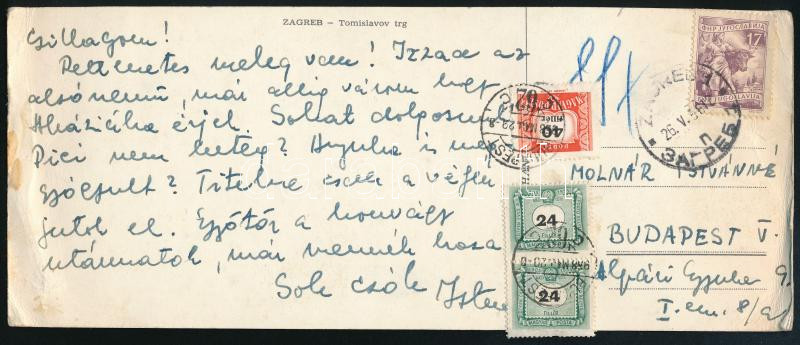 ZAGREB – Tomislavov trg
Csillagom!
Rettenetes meleg van! Izzad az
alsónemű, már alig várom hogy
érjek. Sokat dolgozom
Pici nem beteg? Anyuka is meg
gyógyult? Titelre csak a végén
jutok el. Gyötör a honvágy
utánnatok, már mennék haza
Sok csók
24
24
40
FNR JUGOSLAVIJA
17
ZAGREB
26. V. 58
ЗАГРЕБ
MOLNÁR ISTVÁNNÉ
BUDAPEST V.
Alpári Gyula 9.
I. em. 8/a